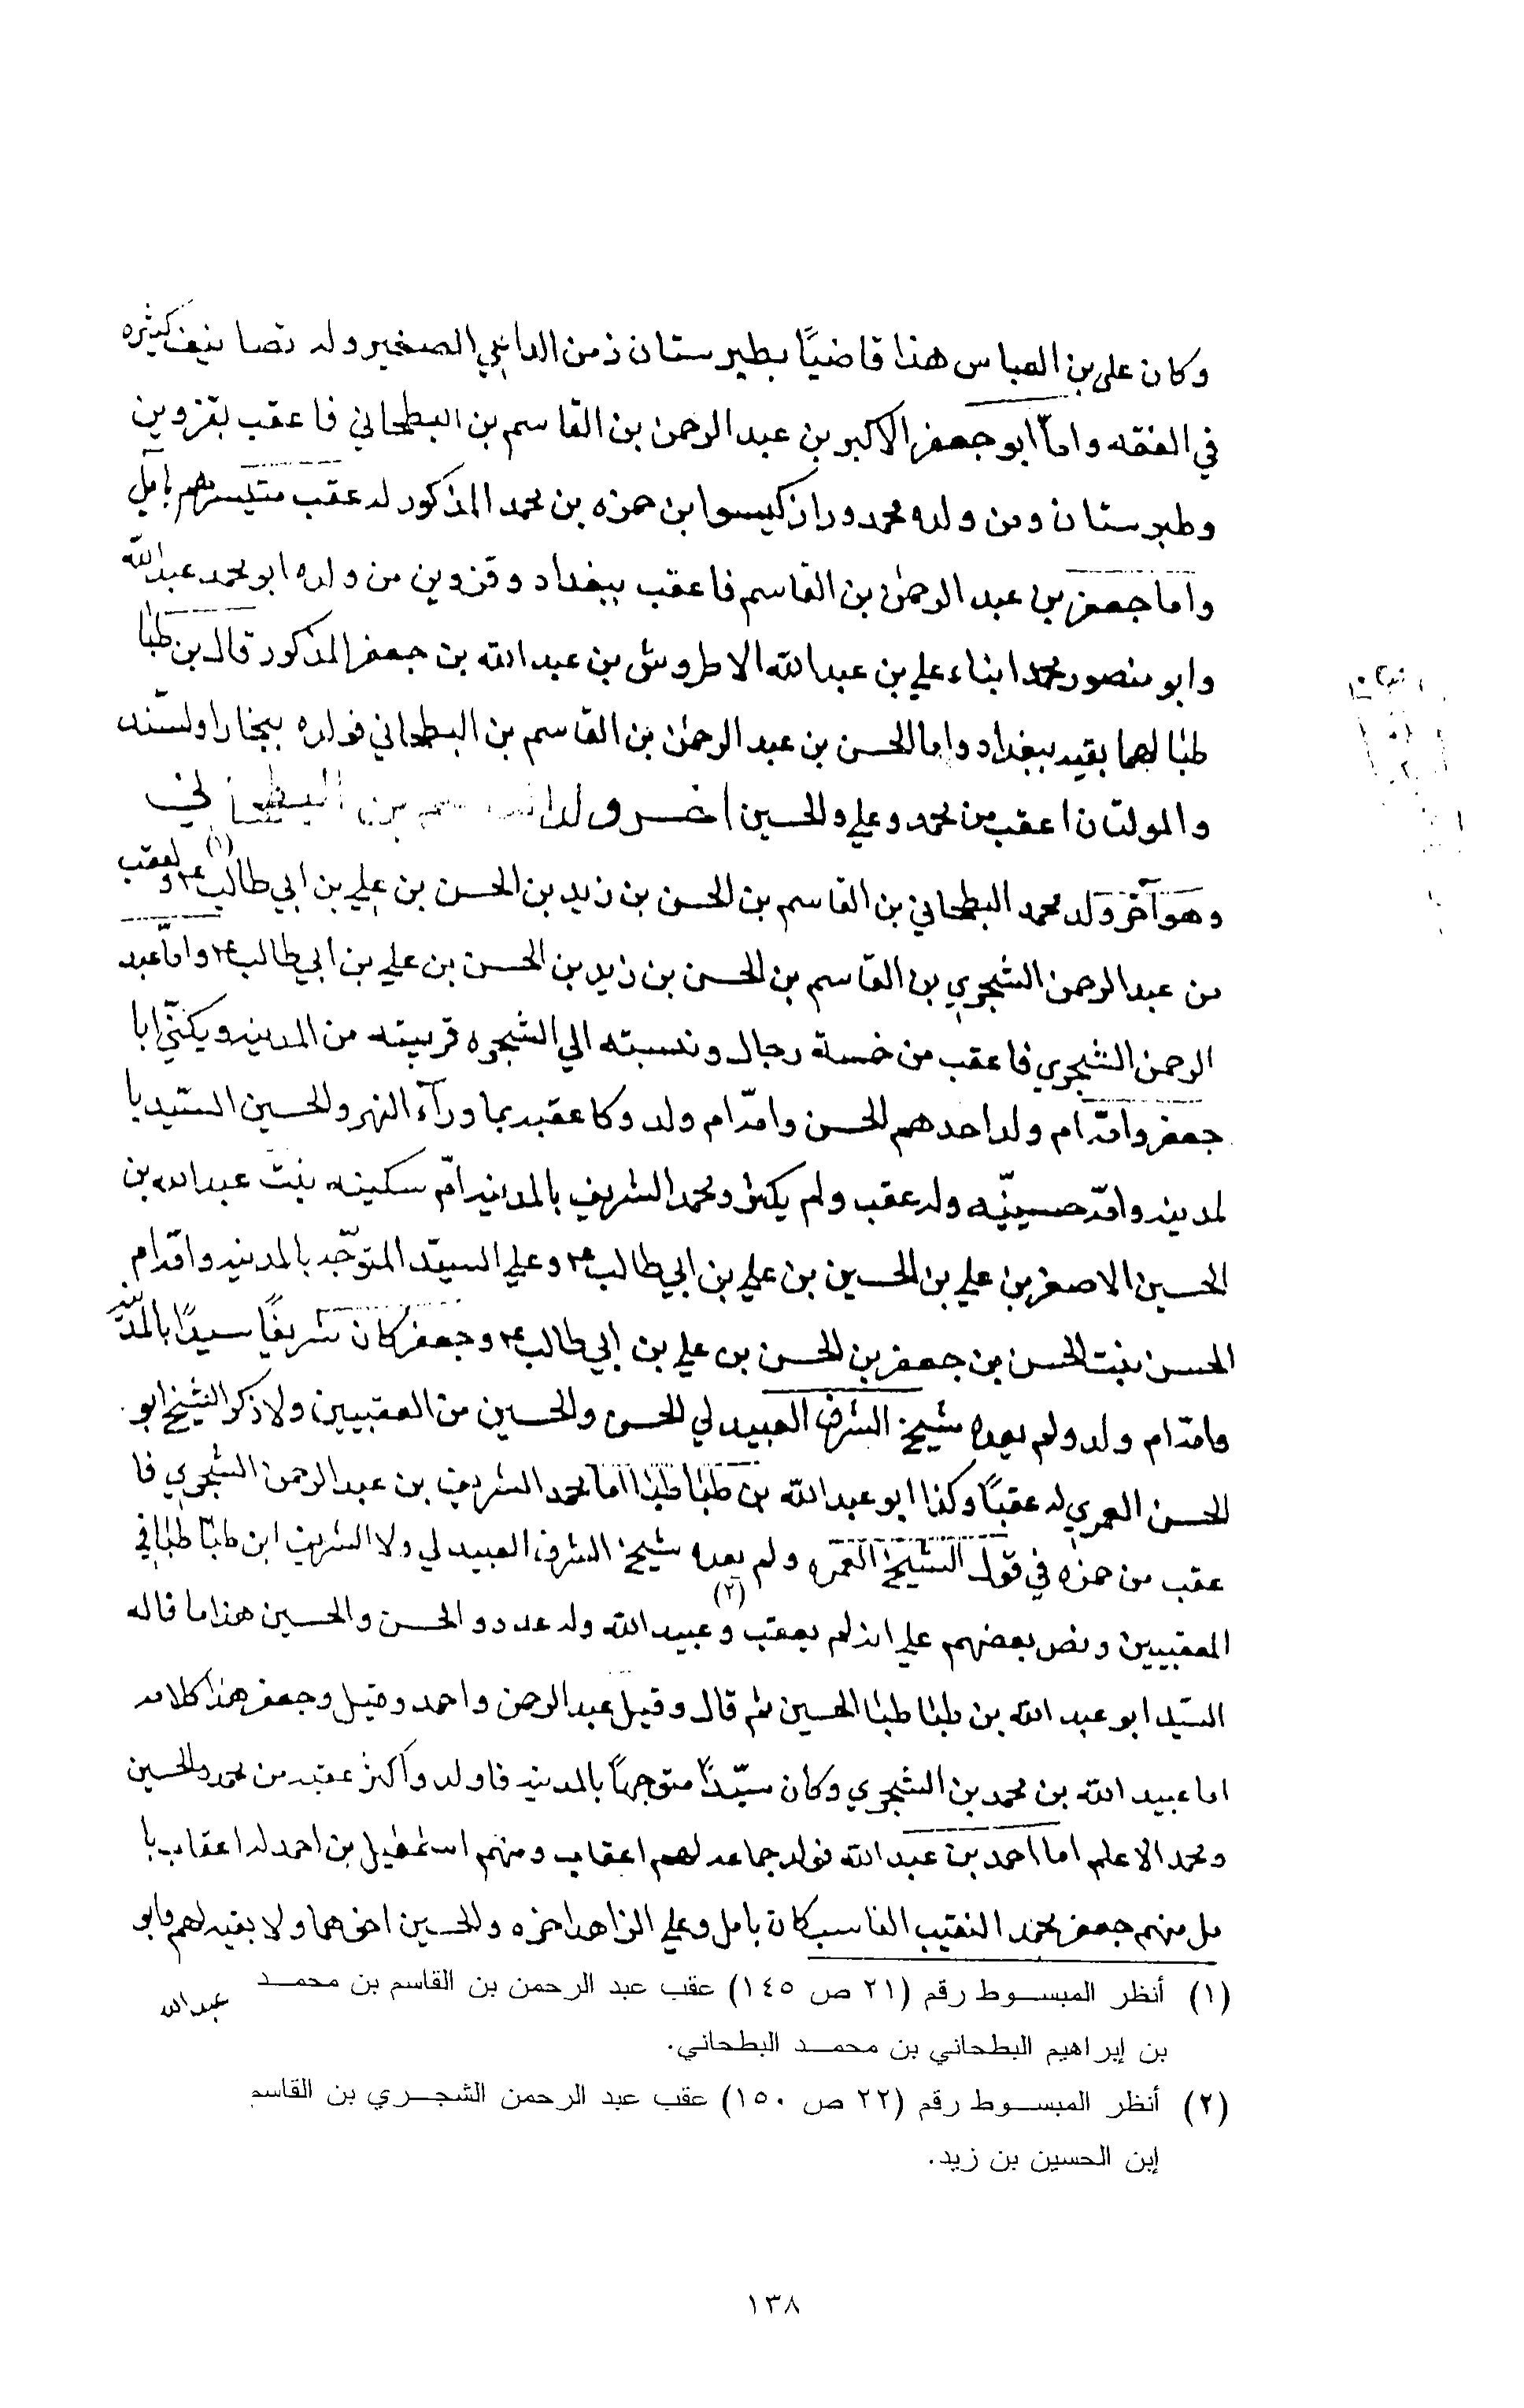 وكان علي بن العباس هذا قاضيًا بطبرستان زمن الداعي الصغير وله تصانيف كثيره
في الفقه واما ابو جعفر الاكبر بن عبد الرحمن بن القاسم بن البطحاني فاعقب بقزوين
وطبرستان ومن ولده محمد دراز كيسو ابن حمزه بن محمد المذكور له عقب منهم بامل
واما جعفر بن عبد الرحمٰن بن القاسم فاعقب ببغداد وقزوين من ولده ابو محمد عبد الله
وابو منصور محمد ابناء علي بن عبد الله الاطروش بن عبد الله بن جعفر المذكور قال بن طبا
طبا لهما بقيه ببغداد واما الحسن بن عبد الرحمٰن بن القاسم بن البطحاني فولده ببخارا ولسنه
والمولتان اعقب من محمد وعلي والحسين اخر ولد القاسم بن البطحاني
وهو آخر ولد محمد البطحاني بن القاسم بن الحسن بن زيد بن الحسن بن علي بن ابي طالب ع٢ (١) ولعقب
من عبد الرحمن الشجري بن القاسم بن الحسن بن زيد بن الحسن بن علي بن ابي طالب ع٢ واما عبد
الرحمن الشجري فاعقب من خمسة رجال ونسبته الي الشجره قريبته من المدينه ويكنّي ابا
جعفر وامّه ام ولد احدهم الحسن وامّه ام ولد وكا عقبه بما ورآء النهر والحسين السيّد با
لمدينه وامّه حسينيّه وله عقب ولم يكثر ومحمد الشريف بالمدينه امّ سكينه بنت عبد الله بن
الحسين الاصغر بن علي بن الحسين بن علي بن ابي طالب ع٢ وعلي السيّد المتوجّه بالمدينه وامّه ام
الحسن بنت الحسن بن جعفر بن الحسن بن علي بن ابي طالب ع٢ وجعفر كان شريفًا سيدًا بالمدينه
وامّه ام ولد ولم يعده شيخ الشرف العبيدلي للحسن والحسين من العقبيين ولا ذكر الشيخ ابو
الحسن العمري له عقبًا وكذا ابو عبد الله بن طباطبا اما محمد الشريف بن عبد الرحمن الشجري فا
عقب من حمزه في قول الشيخ العمره ولم يعده شيخ الشرف العبيدلي ولا الشريف ابن طبا طبا في
المعقبيين ونص بعضهم علي انه لم يعقب (٢) وعبيد الله وله عدد والحسن والحسين هذا ما قاله
السيّد ابو عبد الله بن طبا طبا الحسين ثم قال وقيل عبد الرحمن واحمد وقيل وجعفر هذا كلامه
اما عبيد الله بن محمد بن الشجري وكان سيّدًا متوجهًا بالمدينه فاولد واكثر عقبه من محمد والحسين
ومحمد الاعلم اما احمد بن عبد الله فولد جماعه لهم اعقاب ومنهم اسمٰعيل بن احمد له اعقاب با
مل منهم جعفر محمد النقيب الناسب كان بامل وعلي الزاهد اخره والحسين اخوهما ولا بقيه لهم وابو
عبد الله
(١) أنظر المبسوط رقم (٢١ ص ١٤٥) عقب عبد الرحمن بن القاسم بن محمد
بن إبراهيم البطحاني بن محمد البطحاني.
(٢) أنظر المبسوط رقم (٢٢ ص ١٥٠) عقب عبد الرحمن الشجري بن القاسم
إبن الحسين بن زيد.
١٣٨